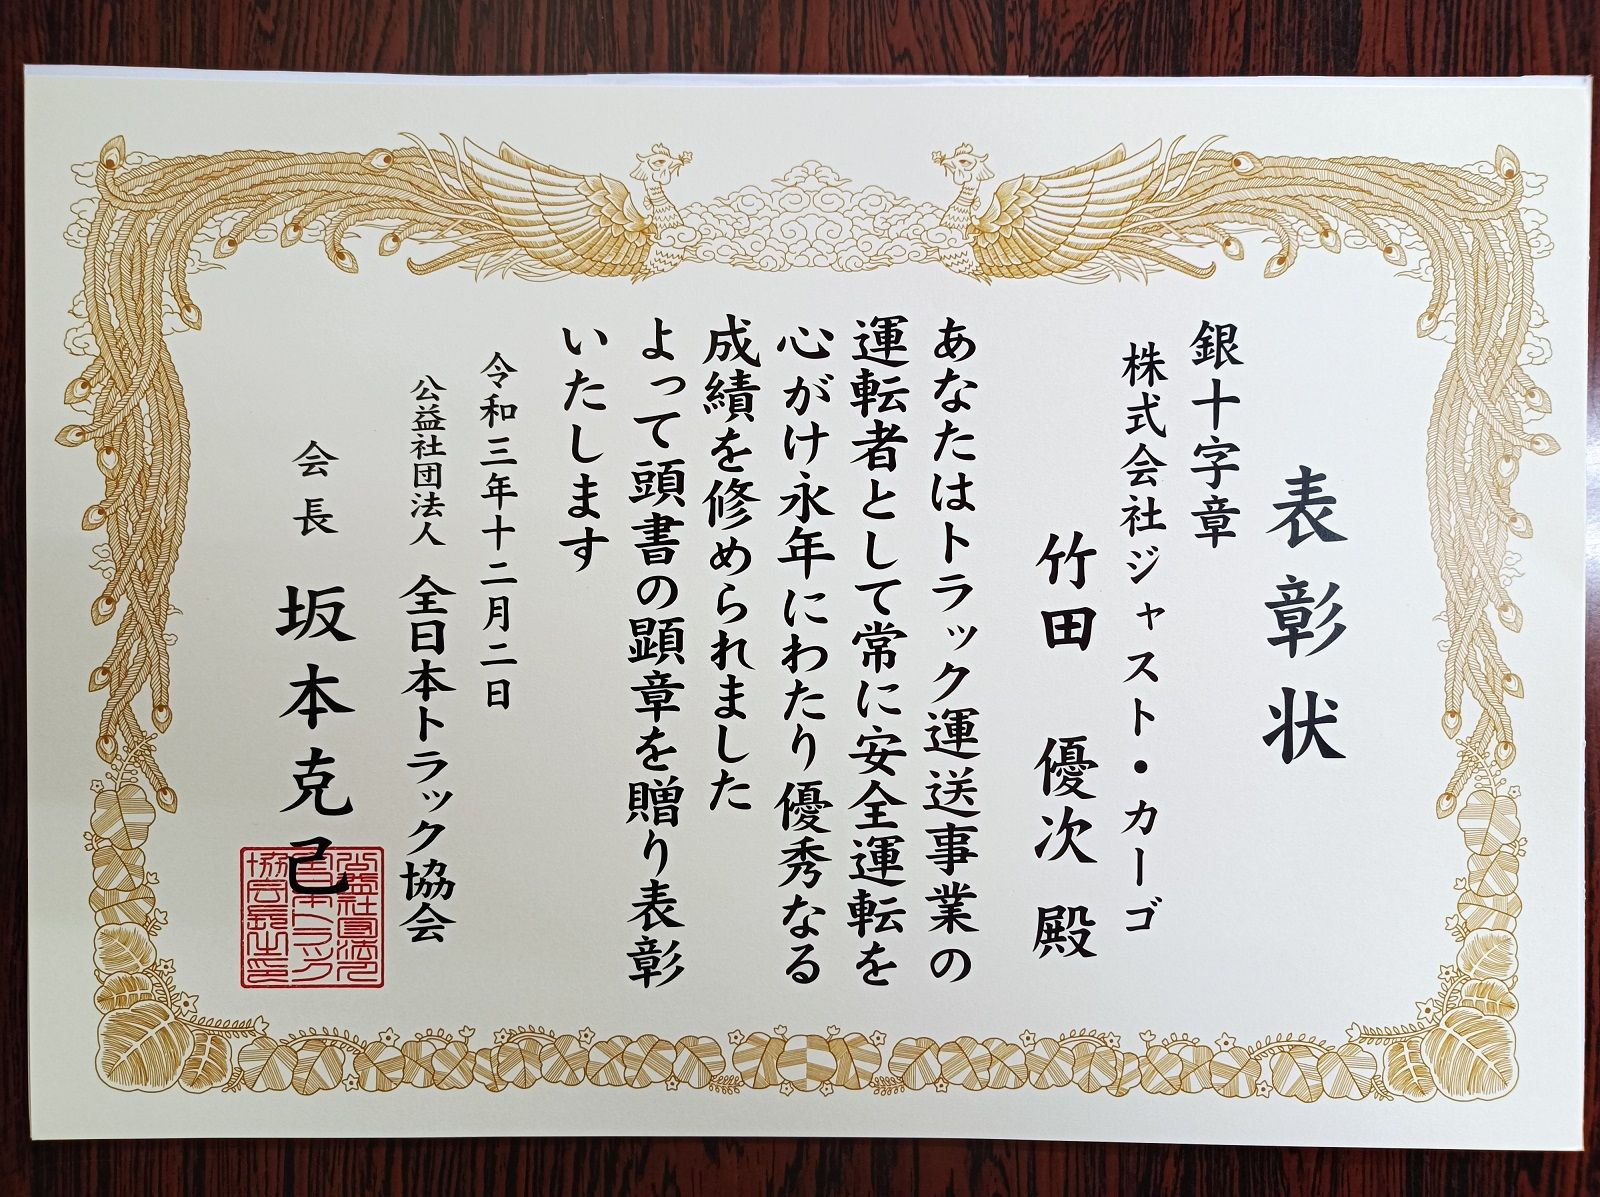 表彰状
銀十字章
株式会社ジャスト・カーゴ
竹田 優次 殿
あなたはトラック運送事業の
運転者として常に安全運転を
心がけ永年にわたり優秀なる
成績を修められました
よって頭書の顕章を贈り表彰
いたします
令和三年十二月二日
公益社団法人 全日本トラック協会
会長 坂本克己
公益社団法人
全日本トラック
協会長之印